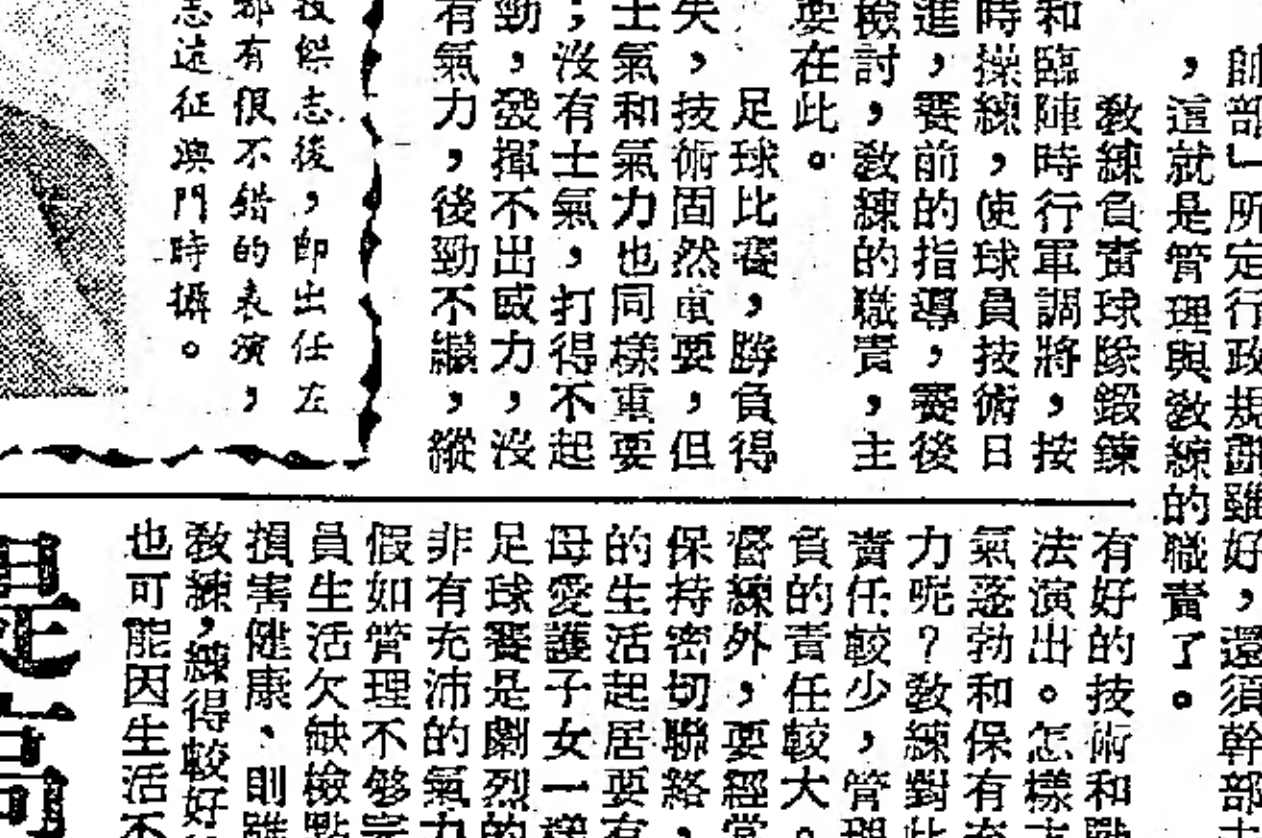 帥部」所定行政規劃雖好，還須幹部
，這就是管理與教練的職責了。
教練負責球隊鍛鍊
和臨陣時行軍調將，按
時操練，使球員技術日
進，賽前的指導，賽後
檢討，教練的職責，主
要在此。
足球比賽，勝負得
失，技術固然重要，但
士氣和氣力也同樣重要
；沒有士氣，打得不起
勁，發揮不出威力，沒
有氣力，後勁不繼，縱
傑志後，即出任左
都有很不錯的表演，
志遠征澳門時攝。
有好的技術和戰
法演出。怎樣
氣蓬勃和保有充
力呢？教練對此
責任較少，管理
負的責任較大。
督練外，要經常
保持密切聯絡，
的生活起居要有
母愛護子女一樣
足球賽是劇烈的
非有充沛的氣力
假如管理不够完
員生活欠缺檢點
損害健康，則雖
教練，練得較好
也可能因生活不